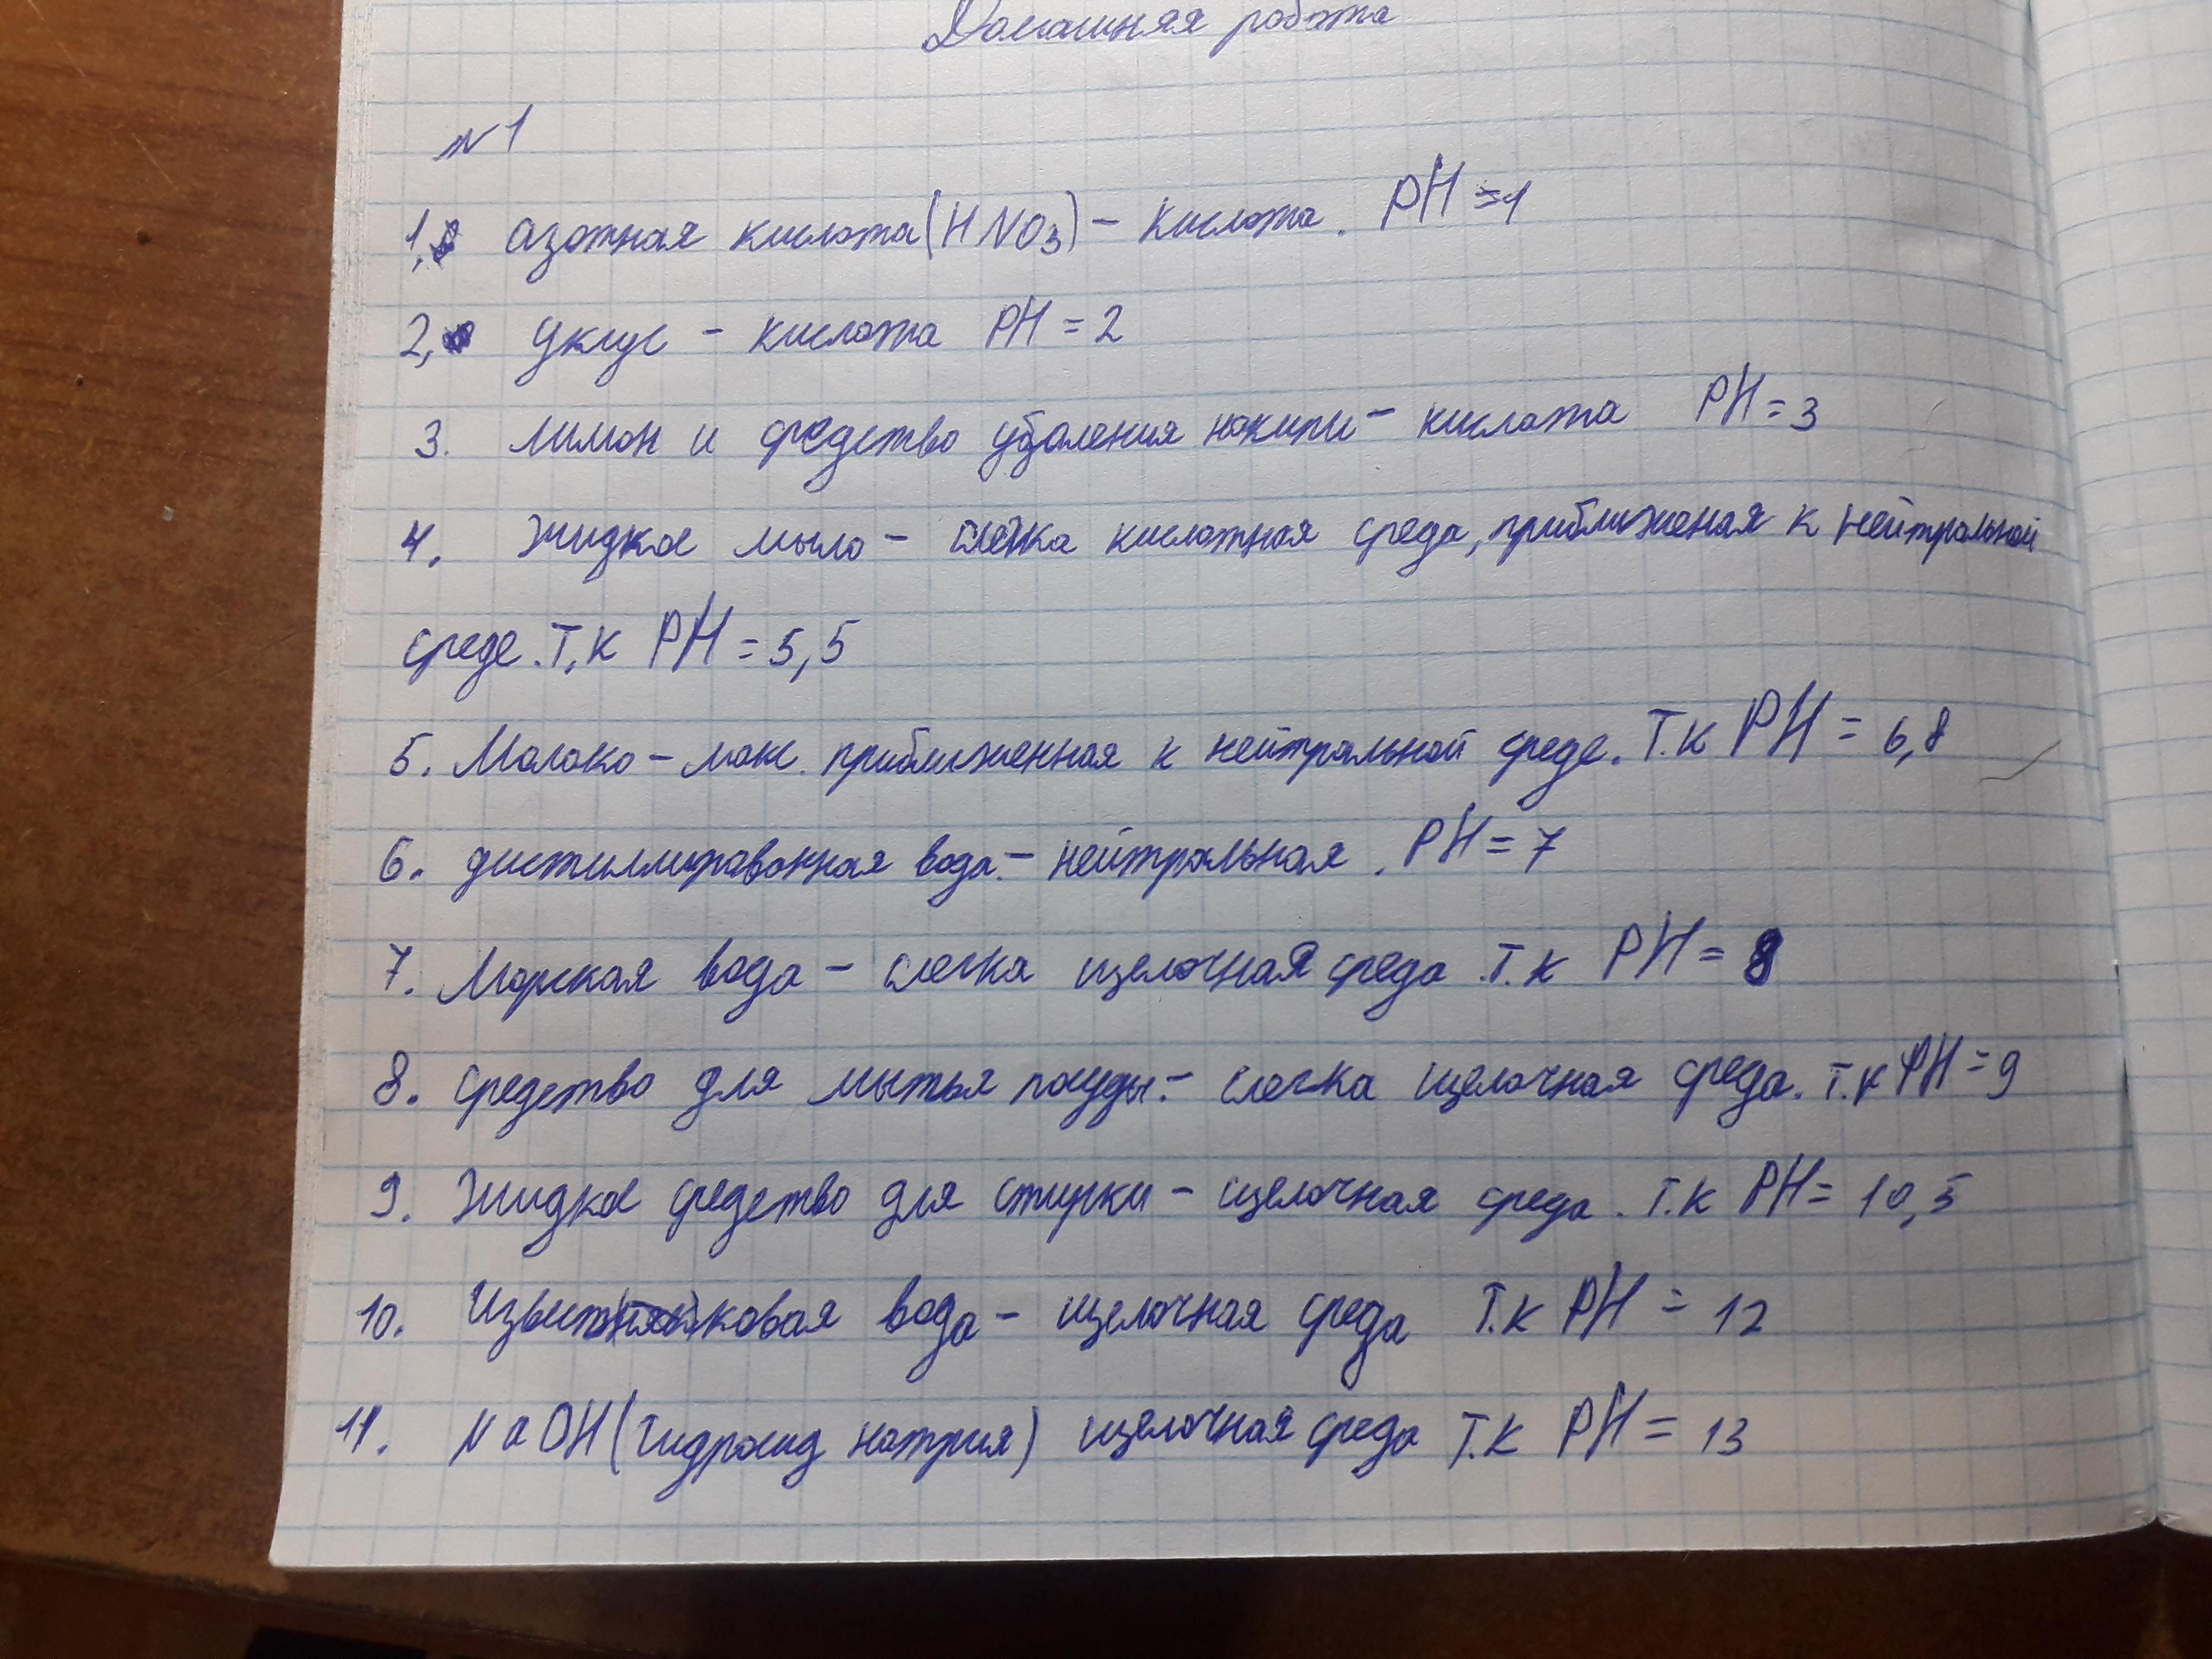 Домашняя работа
№1
1. азотная кислота (HNO3) - кислота. PH = 1
2. Уксус - кислота PH = 2
3. лимон и средство удаления накипи - кислота PH = 3
4. Жидкое мыло - слегка кислотная среда, приближеная к нейтральной
среде. Т.к PH = 5,5
5. Молоко - мак. приближенная к нейтральной среде. Т.к PH = 6,8
6. дистиллированная вода - нейтральная. PH = 7
7. Морская вода - слегка щелочная среда. Т.к PH = 8
8. средство для мытья посуды - слегка щелочная среда. Т.к PH = 9
9. Жидкое средство для стирки - щелочная среда. Т.к PH = 10,5
10. Известковая вода - щелочная среда Т.к PH = 12
11. NaOH (гидроксид натрия) щелочная среда Т.к PH = 13